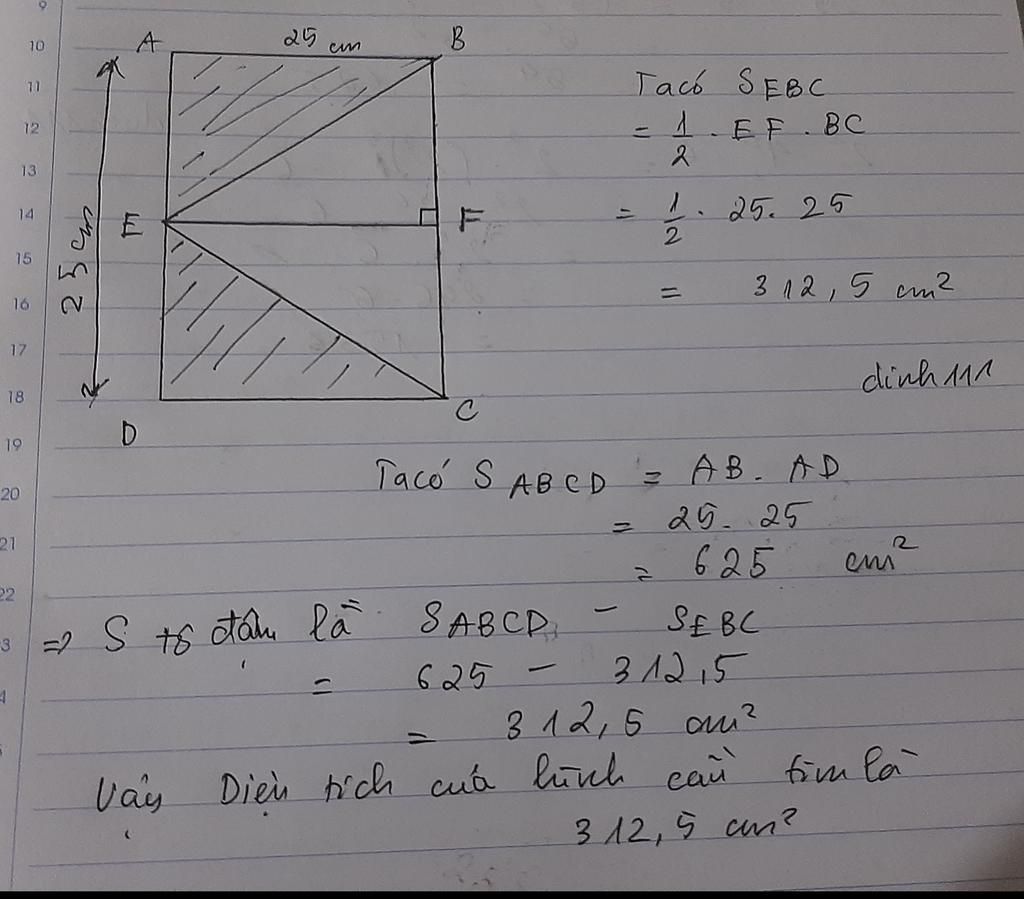 9
10
11
12
13
14
15
16
17
18
19
20
21
22
3
4
5
A 25 cm B
25 cm
E F
D C
Ta có S EBC
= 1/2 . EF . BC
= 1/2 . 25 . 25
= 312,5 cm²
dinh111
Ta có S ABCD = AB . AD
= 25 . 25
= 625 cm²
=> S tô đậm là S ABCD - S EBC
= 625 - 312,5
= 312,5 cm²
Vậy Diện tích của hình cần tìm là
312,5 cm²